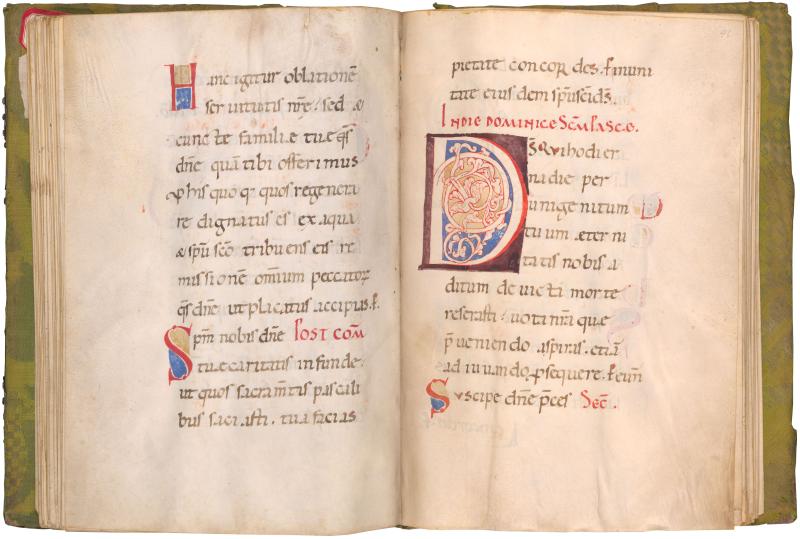 Hanc igitur oblationē
seruitutis nr̄e. sed &
cunctę familię tuę q̄s
dn̄e quā tibi offerimus
ꝓ his quoq; quos regenera
re dignatus es ex aqua
& sp̄u sc̄o tribuens eis re
missionē omīum peccatoꝝ
q̄s dn̄e ut placatus accipias. ꝑ.
Sp̄m nobis dn̄e Post com̄
tuę caritatis infunde.
ut quos sacram̄tis pascali
bus saciasti. tua facias
pietate concordes. ꝑ in uni
tate eiusdem sp̄us sc̄i d̄s.
In die dominice sc̄m pasce.
DS Qui hodier
na die per
unigenitum
tuum æterni
tatis nobis a
ditum deuicta morte
reserasti. uota nr̄a quę
p̄ueniendo aspiras. etiā
adiuuando ꝓsequere. ꝑ eun̄
Suscipe dn̄e p̄ces Sec̄.